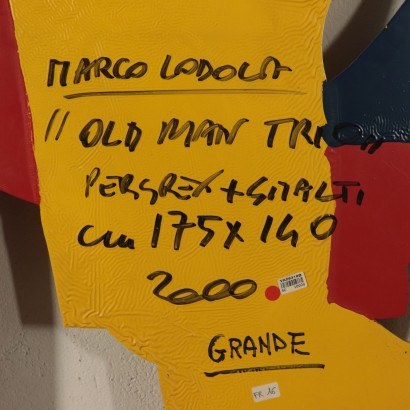 MARCO LODOLA
" OLD MAN TRICO
PERSPEX + SMALTI
cm 175 x 140
2000
GRANDE
PR 16